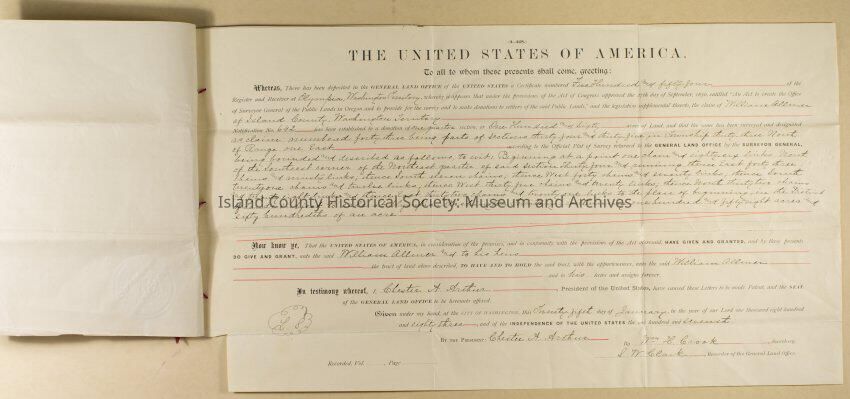 (4-428.)
THE UNITED STATES OF AMERICA,
To all to whom these presents shall come, greeting:
Whereas, There has been deposited in the GENERAL LAND OFFICE of the UNITED STATES a Certificate numbered Five Hundred and fifty four of the
Register and Receiver at Olympia, Washington Territory, whereby it appears that under the provisions of the Act of Congress approved the 27th day of September, 1850, entitled "An Act to create the Office
of Surveyor General of the Public Lands in Oregon and to provide for the survey and to make donations to settlers of the said Public Lands," and the legislation supplemental thereto, the claim of William
of Island County, Washington Territory
Notification No. 642 has been established to a donation of one quarter section, or One Hundred and Sixty acres of Land, and that the same has been surveyed and designated
as claim numbered forty three being parts of Sections thirty four and thirty five in Township thirty three North
of Range one East according to the Official Plat of Survey returned to the GENERAL LAND OFFICE by the SURVEYOR GENERAL,
being bounded and described as follows to wit: Beginning at a point one chain and eighty six links North
of the Southeast corner of the Northeast quarter of said section thirty four and running thence East forty three
chains and ninety links; thence South eleven chains; thence West forty chains and seventy links; thence South
twenty one chains and twelve links; thence West thirty five chains and links; thence North thirty two chains
Island County Historical Society: Museum and Archives
one hundred and fifty eight acres and
fifty hundredths of an acre
Now know ye, That the UNITED STATES OF AMERICA, in consideration of the premises, and in conformity with the provisions of the Act aforesaid, HAVE GIVEN AND GRANTED, and by these presents
DO GIVE AND GRANT, unto the said William and to his heirs
the tract of land above described, TO HAVE AND TO HOLD the said tract, with the appurtenances, unto the said William
and to his heirs and assigns forever.
In testimony whereof, I Chester A. Arthur, President of the United States, have caused these Letters to be made Patent, and the SEAL
of the GENERAL LAND OFFICE to be hereunto affixed.
Given under my hand, at the CITY OF WASHINGTON, this Twenty fifth day of January, in the year of our Lord one thousand eight hundred
and eighty three, and of the INDEPENDENCE OF THE UNITED STATES the one hundred and seventh.
L S
By the PRESIDENT: Chester A. Arthur
By Wm H. Crook, Secretary.
S. W. Clark, Recorder of the General Land Office.
Recorded, Vol. Page